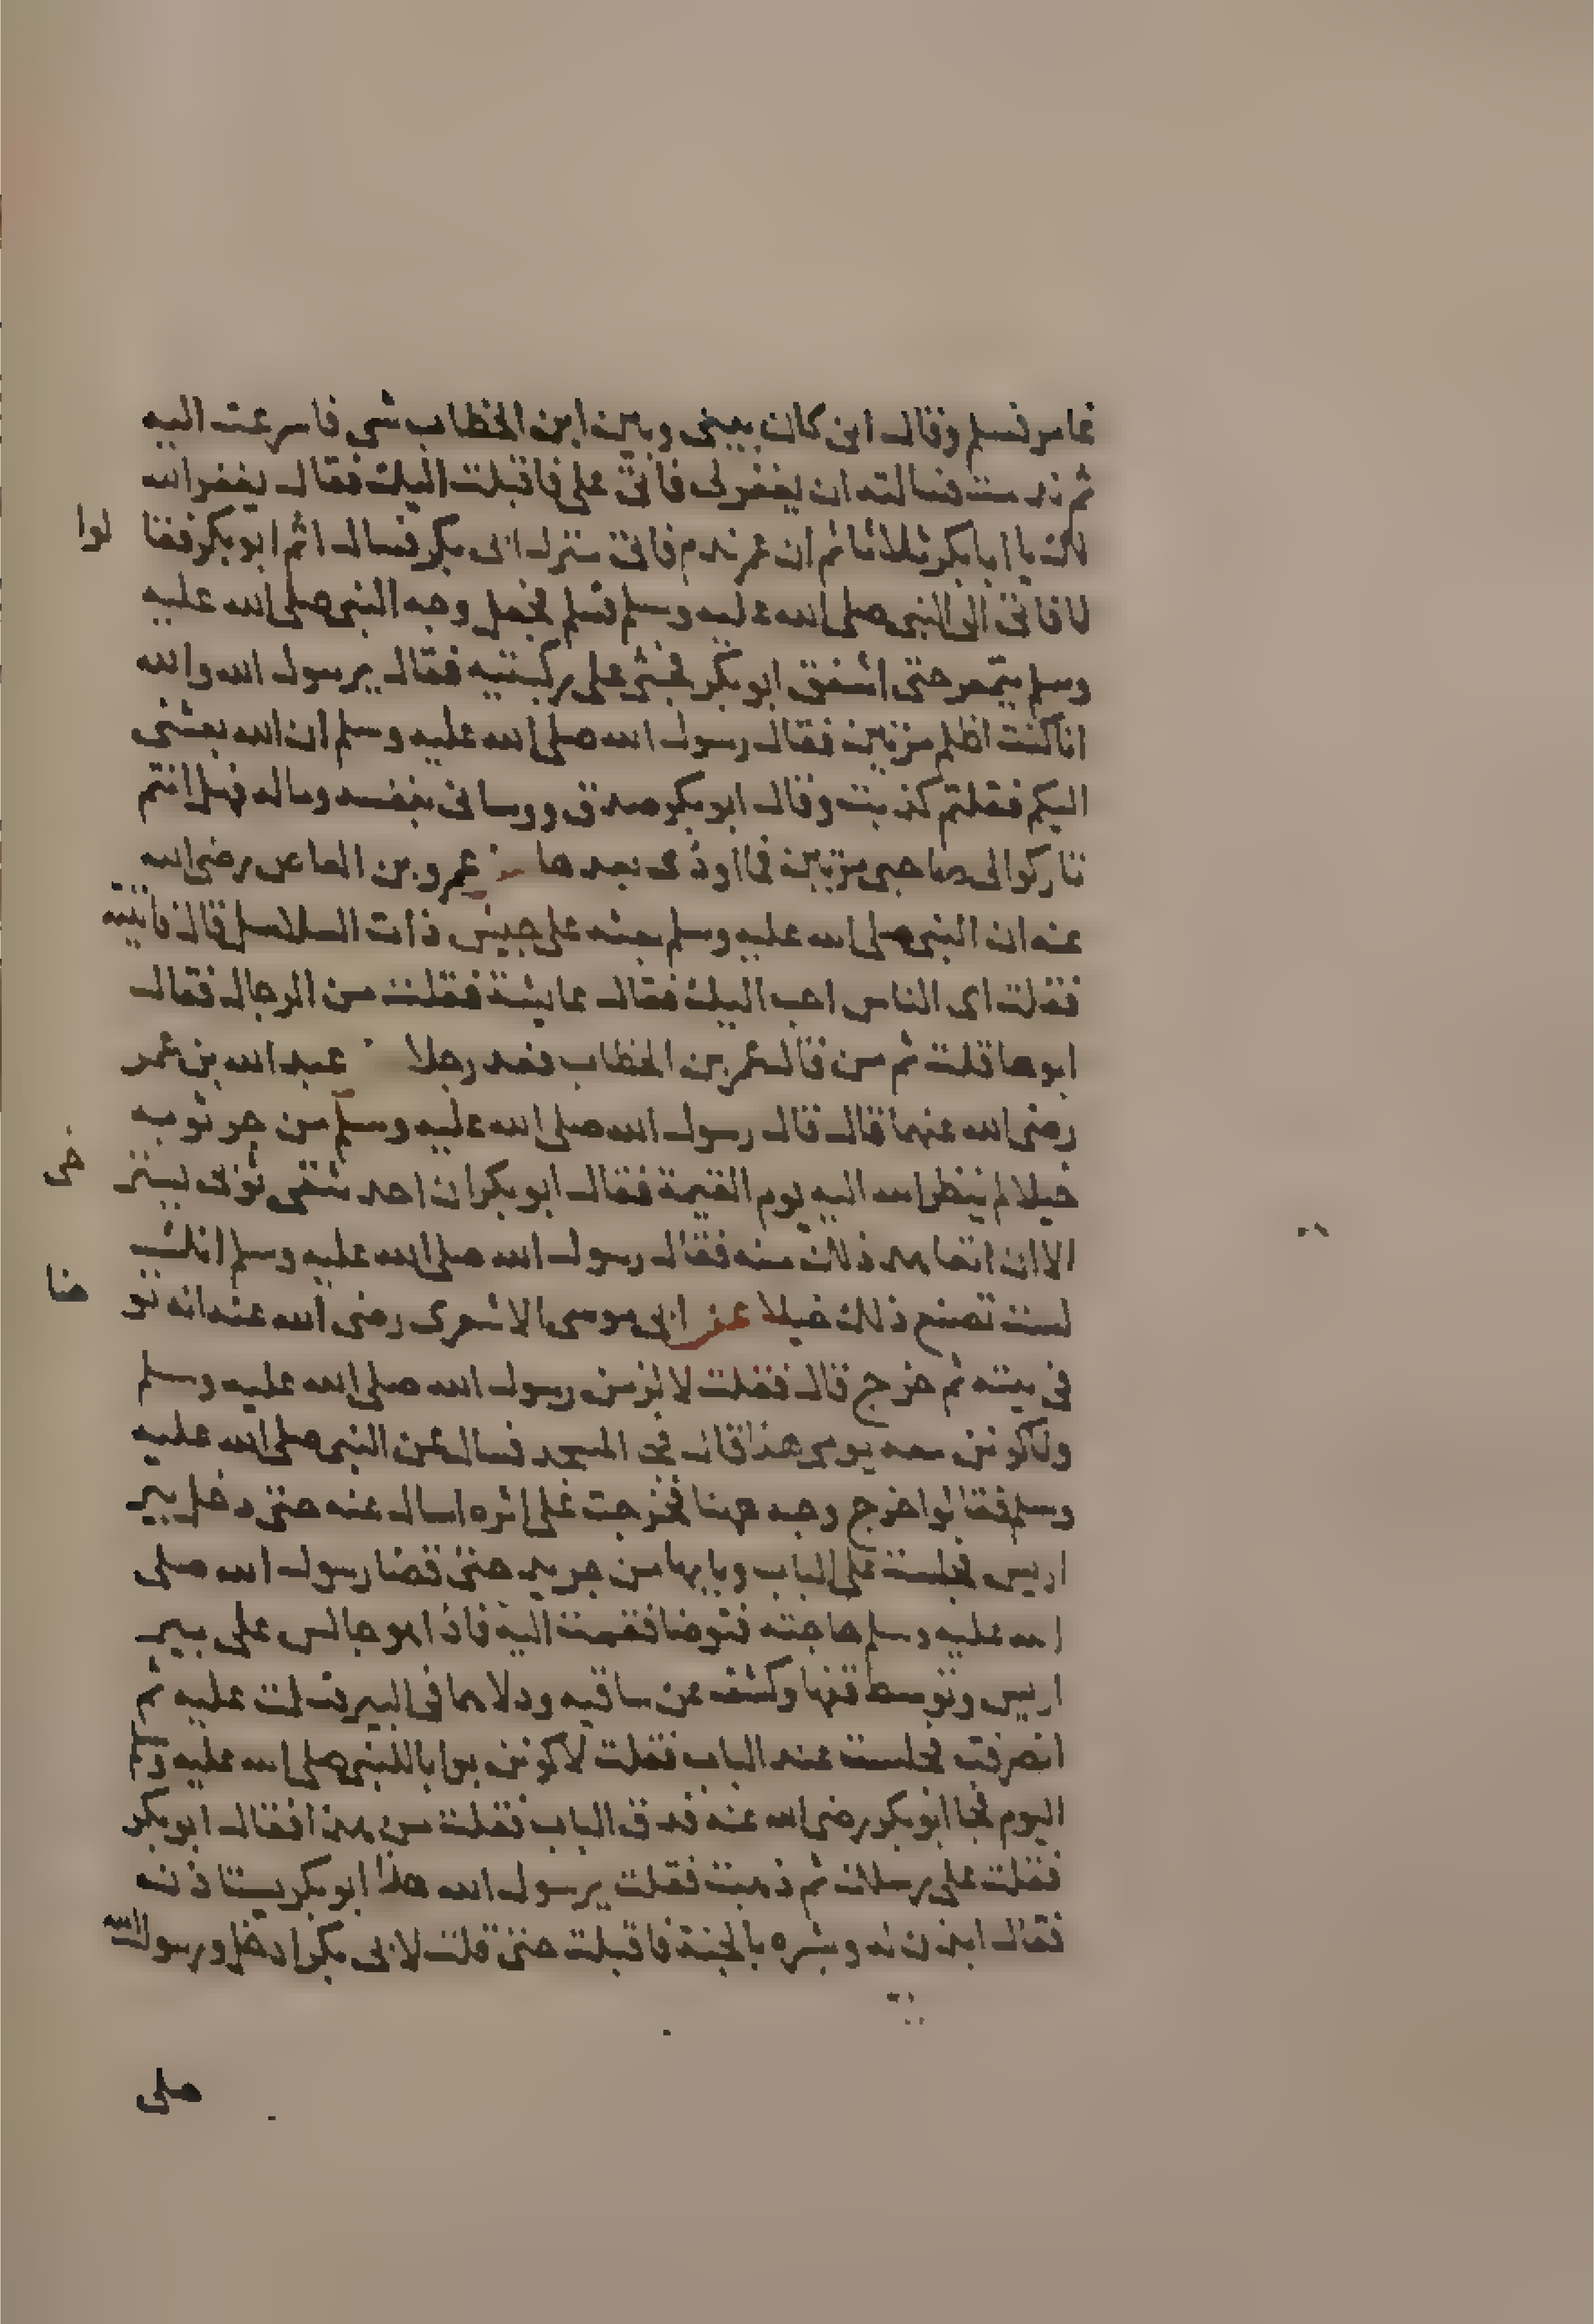 غامر فسلم وقال انى كان بينى وبين ابن الخطاب شى فاسرعت اليه
ثم ندمت فسالته ان يغفر لى فابى على فاقبلت اليك فقال يغفر الله
لك يا ابا بكر ثلاثا ثم ان عمر ندم فاتى منزل ابى بكر فسال اثم ابو بكر فقا
لوا
لا فاتى الى النبى صلى الله عليه وسلم فسلم فجعل وجه النبى صلى الله عليه
وسلم يتمعر حتى اشفق ابو بكر فجثى على ركبتيه فقال يرسول الله والله
انا كنت اظلم مرتين فقال رسول الله صلى الله عليه وسلم ان الله بعثنى
اليكم فقلتم كذبت وقال ابو بكر صدق وواسانى بنفسه وماله فهل انتم
تاركوا لى صاحبى مرتين فما اوذى بعدها عمرو بن العاص رضى الله
عنه ان النبى صلى الله عليه وسلم بعثه على جيش ذات السلاسل قال فاتيته
فقلت اى الناس احب اليك فقال عايشة فقلت من الرجال فقال
ابوها قلت ثم من قال عمر بن الخطاب فعد رجلا عبد الله بن عمر
رضى الله عنهما قال قال رسول الله صلى الله عليه وسلم من جر ثوبه
خيلا لم ينظر الله اليه يوم القيمة فقال ابو بكر ان احد شقى ثوبى يستر
خى
الا ان اتعاهد ذلك منه فقال رسول الله صلى الله عليه وسلم انك
لست تصنع ذلك خيلا عن ابى موسى الاشعرى رضى الله عنه انه تو
ضا
فى بيته ثم خرج قال فقلت لالزمن رسول الله صلى الله عليه وسلم
ولاكونن معه يومى هذا قال فجا المسجد فسال عن النبى صلى الله عليه
وسلم فقالوا خرج وجه ههنا فخرجت على اثره اسال عنه حتى دخل بير
اريس فجلست على الباب وبابها من جريد حتى قضا رسول الله صلى
الله عليه وسلم حاجته فتوضا فقمت اليه فاذا هو جالس على بير
اريس وتوسط قفها وكشف عن ساقيه ودلاهما فى البير فسلمت عليه ثم
انصرفت فجلست عند الباب فقلت لاكونن بوابا للنبى صلى الله عليه وسلم
اليوم فجا ابو بكر رضى الله عنه فدق الباب فقلت من هذا فقال ابو بكر
فقلت على رسلك ثم ذهبت فقلت يرسول الله هذا ابو بكر يستاذنه
فقال ايذن له وبشره بالجنة فاقبلت حتى قلت لابى بكر ادخل ورسول الله
صلى